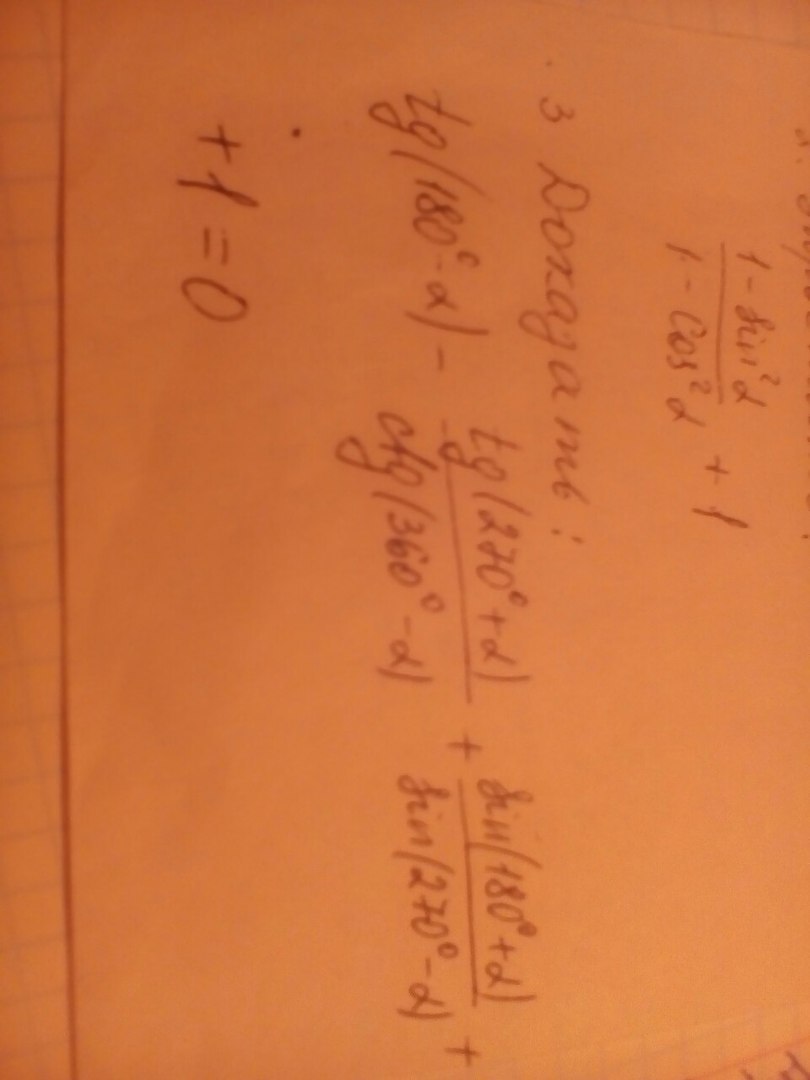 1 - sin²α
1 - cos²α + 1
3 Доказать:
tg(180° - α) - tg(270° + α) / ctg(360° - α) + sin(180° + α) / sin(270° - α) +
+ 1 = 0